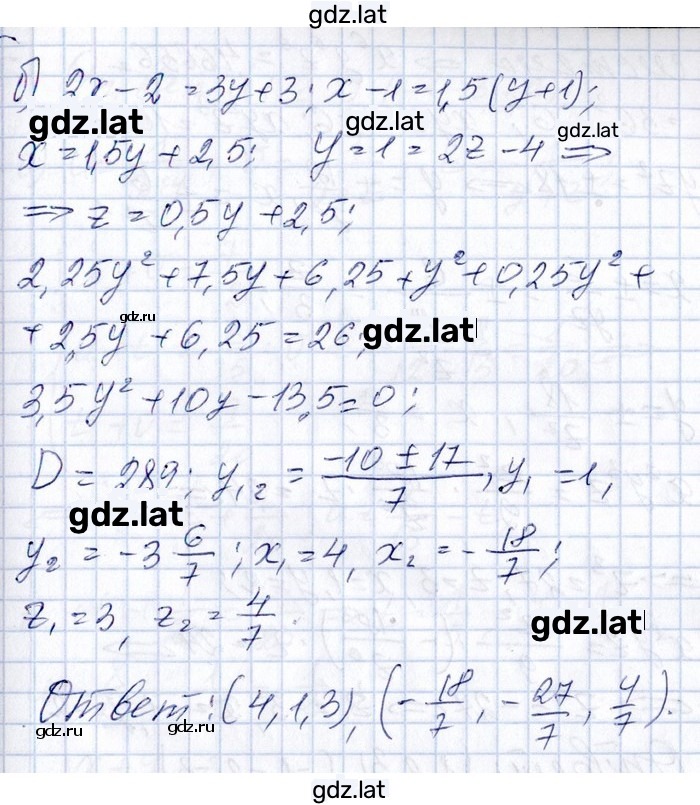 gdz.lat
б) 2x - 2 = 3y + 3; x - 1 = 1,5(y + 1);
gdz.lat gdz.lat gdz.lat
x = 1,5y + 2,5; y = 1 = 2z - 4 ⇒
⇒ z = 0,5y + 2,5;
2,25y² + 7,5y + 6,25 + y² + 0,25y² +
gdz.ru
+ 2,5y + 6,25 = 26; gdz.lat
3,5y² + 10y - 13,5 = 0;
D = 289; y₁,₂ = (-10 ± 17)/7, y₁ = 1,
gdz.lat
y₂ = -3 6/7; x₁ = 4, x₂ = -18/7;
z₁ = 3, z₂ = 4/7. gdz.lat
Ответ: (4, 1, 3), (-18/7, -27/7, 4/7).
gdz.ru gdz.lat
gdz.lat